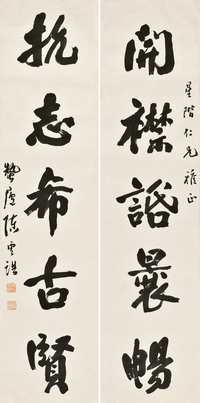 星階仁兄雅正
開襟諧曩暢
抗志希古賢
蟄廬陳雲誥